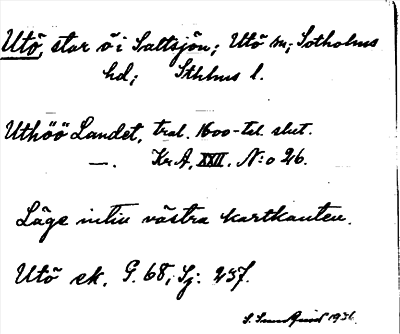 Utö, stor ö i Saltsjön; Utö sn; Sotholms
hd; Sthlms l.
Uthöö Landet, trol. 1600-tal. slut.
—. Kr A, XXII. N:o 26.
Läge intill västra kartkanten.
Utö ek. G. 68; Sj: 257.
1936